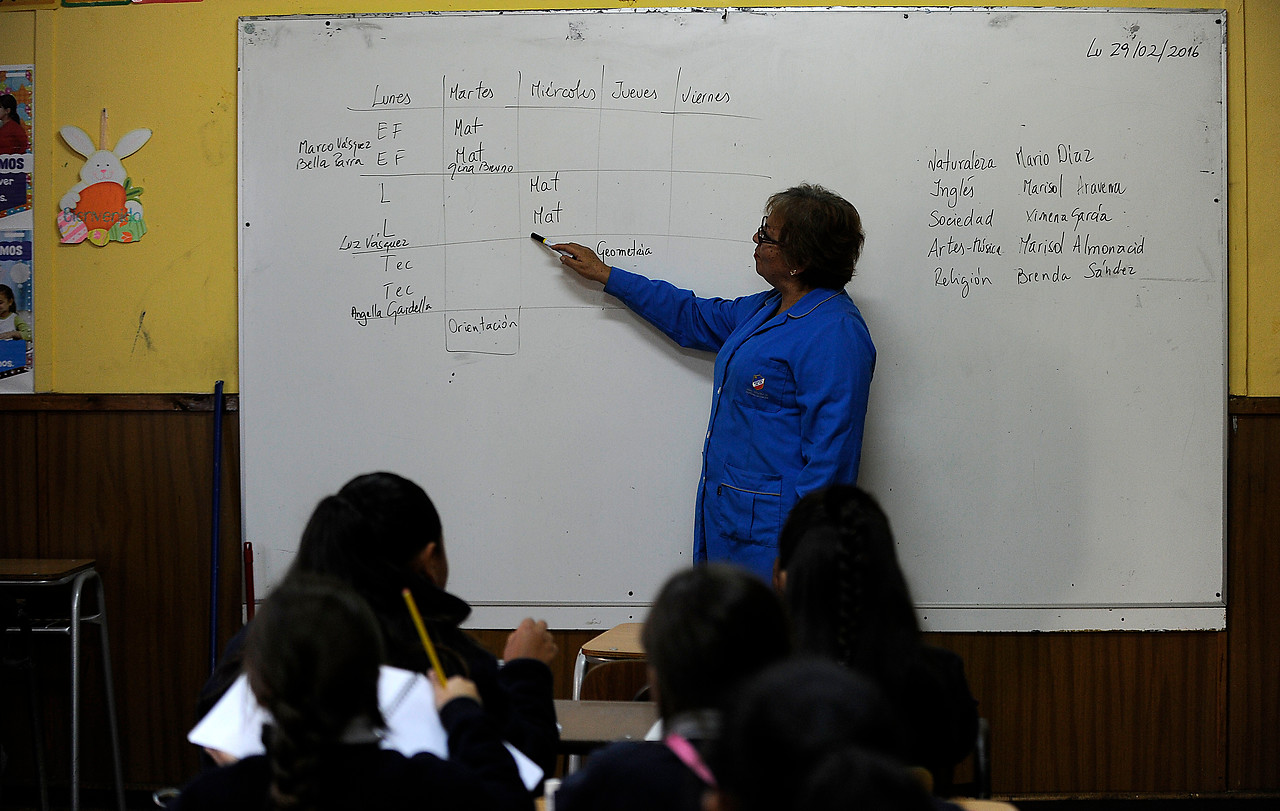 Lu 29/02/2016
Lunes Martes Miércoles Jueves Viernes
EF Mat
Marco Vásquez
Bella Parra EF Mat
Gina Bruno
L Mat
L Mat
Luz Vásquez
Tec Geometría
Tec
Angella Gardella
Orientación
Naturaleza Mario Díaz
Inglés Marisol Aravena
Sociedad Ximena García
Artes-Música Marisol Almonacid
Religión Brenda Sández
Bienvenido
MOS
ver
s.
MOS
os.